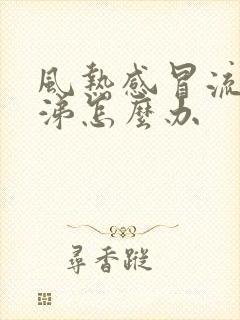 風熱感冒流
涕怎麼办
尋香蹤